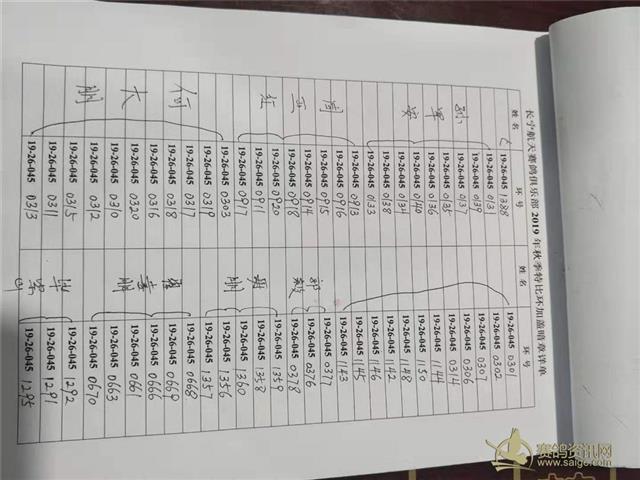 长宁航天赛鸽俱乐部 2019 年秋季特比环加盖暗章详单
姓名 环号 姓名 环号
19-26-045 1388 19-26-045 0301
19-26-045 19-26-045 0302
19-26-045 0139 19-26-045 0307
19-26-045 19-26-045 0306
19-26-045 0135 19-26-045 0314
军 19-26-045 0136 19-26-045 1144
19-26-045 0140 19-26-045 1150
19-26-045 0134 19-26-045 1148
19-26-045 0138 19-26-045 1142
19-26-045 0133 19-26-045 1146
19-26-045 0913 19-26-045 1145
周 19-26-045 0916 19-26-045 1143
19-26-045 0915 19-26-045 0377
19-26-045 0914 19-26-045 0376
19-26-045 0918 毅 19-26-045 0378
19-26-045 0920 19-26-045 1359
红 19-26-045 0911 19-26-045 1358
19-26-045 0917 19-26-045 1360
19-26-045 0303 刚 19-26-045 1356
19-26-045 0319 19-26-045 1357
何 19-26-045 0317 19-26-045 0668
19-26-045 0318 19-26-045 0669
19-26-045 0316 19-26-045 0666
大 19-26-045 0320 19-26-045 0661
19-26-045 0310 19-26-045 0663
刚 19-26-045 0312 19-26-045 0670
19-26-045 0315 19-26-045 1292
19-26-045 0311 19-26-045 1291
19-26-045 0313 19-26-045 1295
赛鸽资讯网
www.saige.com